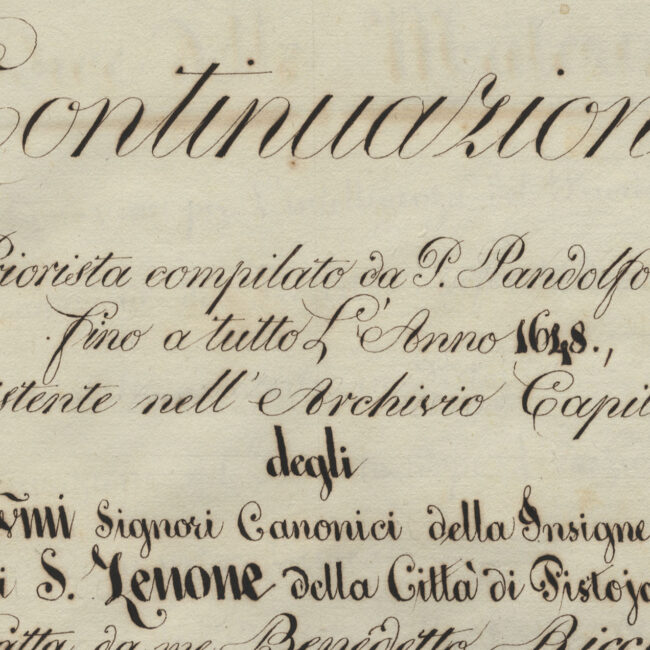 Continuazion
Priorista compilato da P. Pandolfo
fino a tutto L'Anno 1648.,
istente nell' Archivio Capit
degli
Signori Canonici della Insigne
i S. Zenone della Città di Pistoja
atta da me Benedetto Ricc